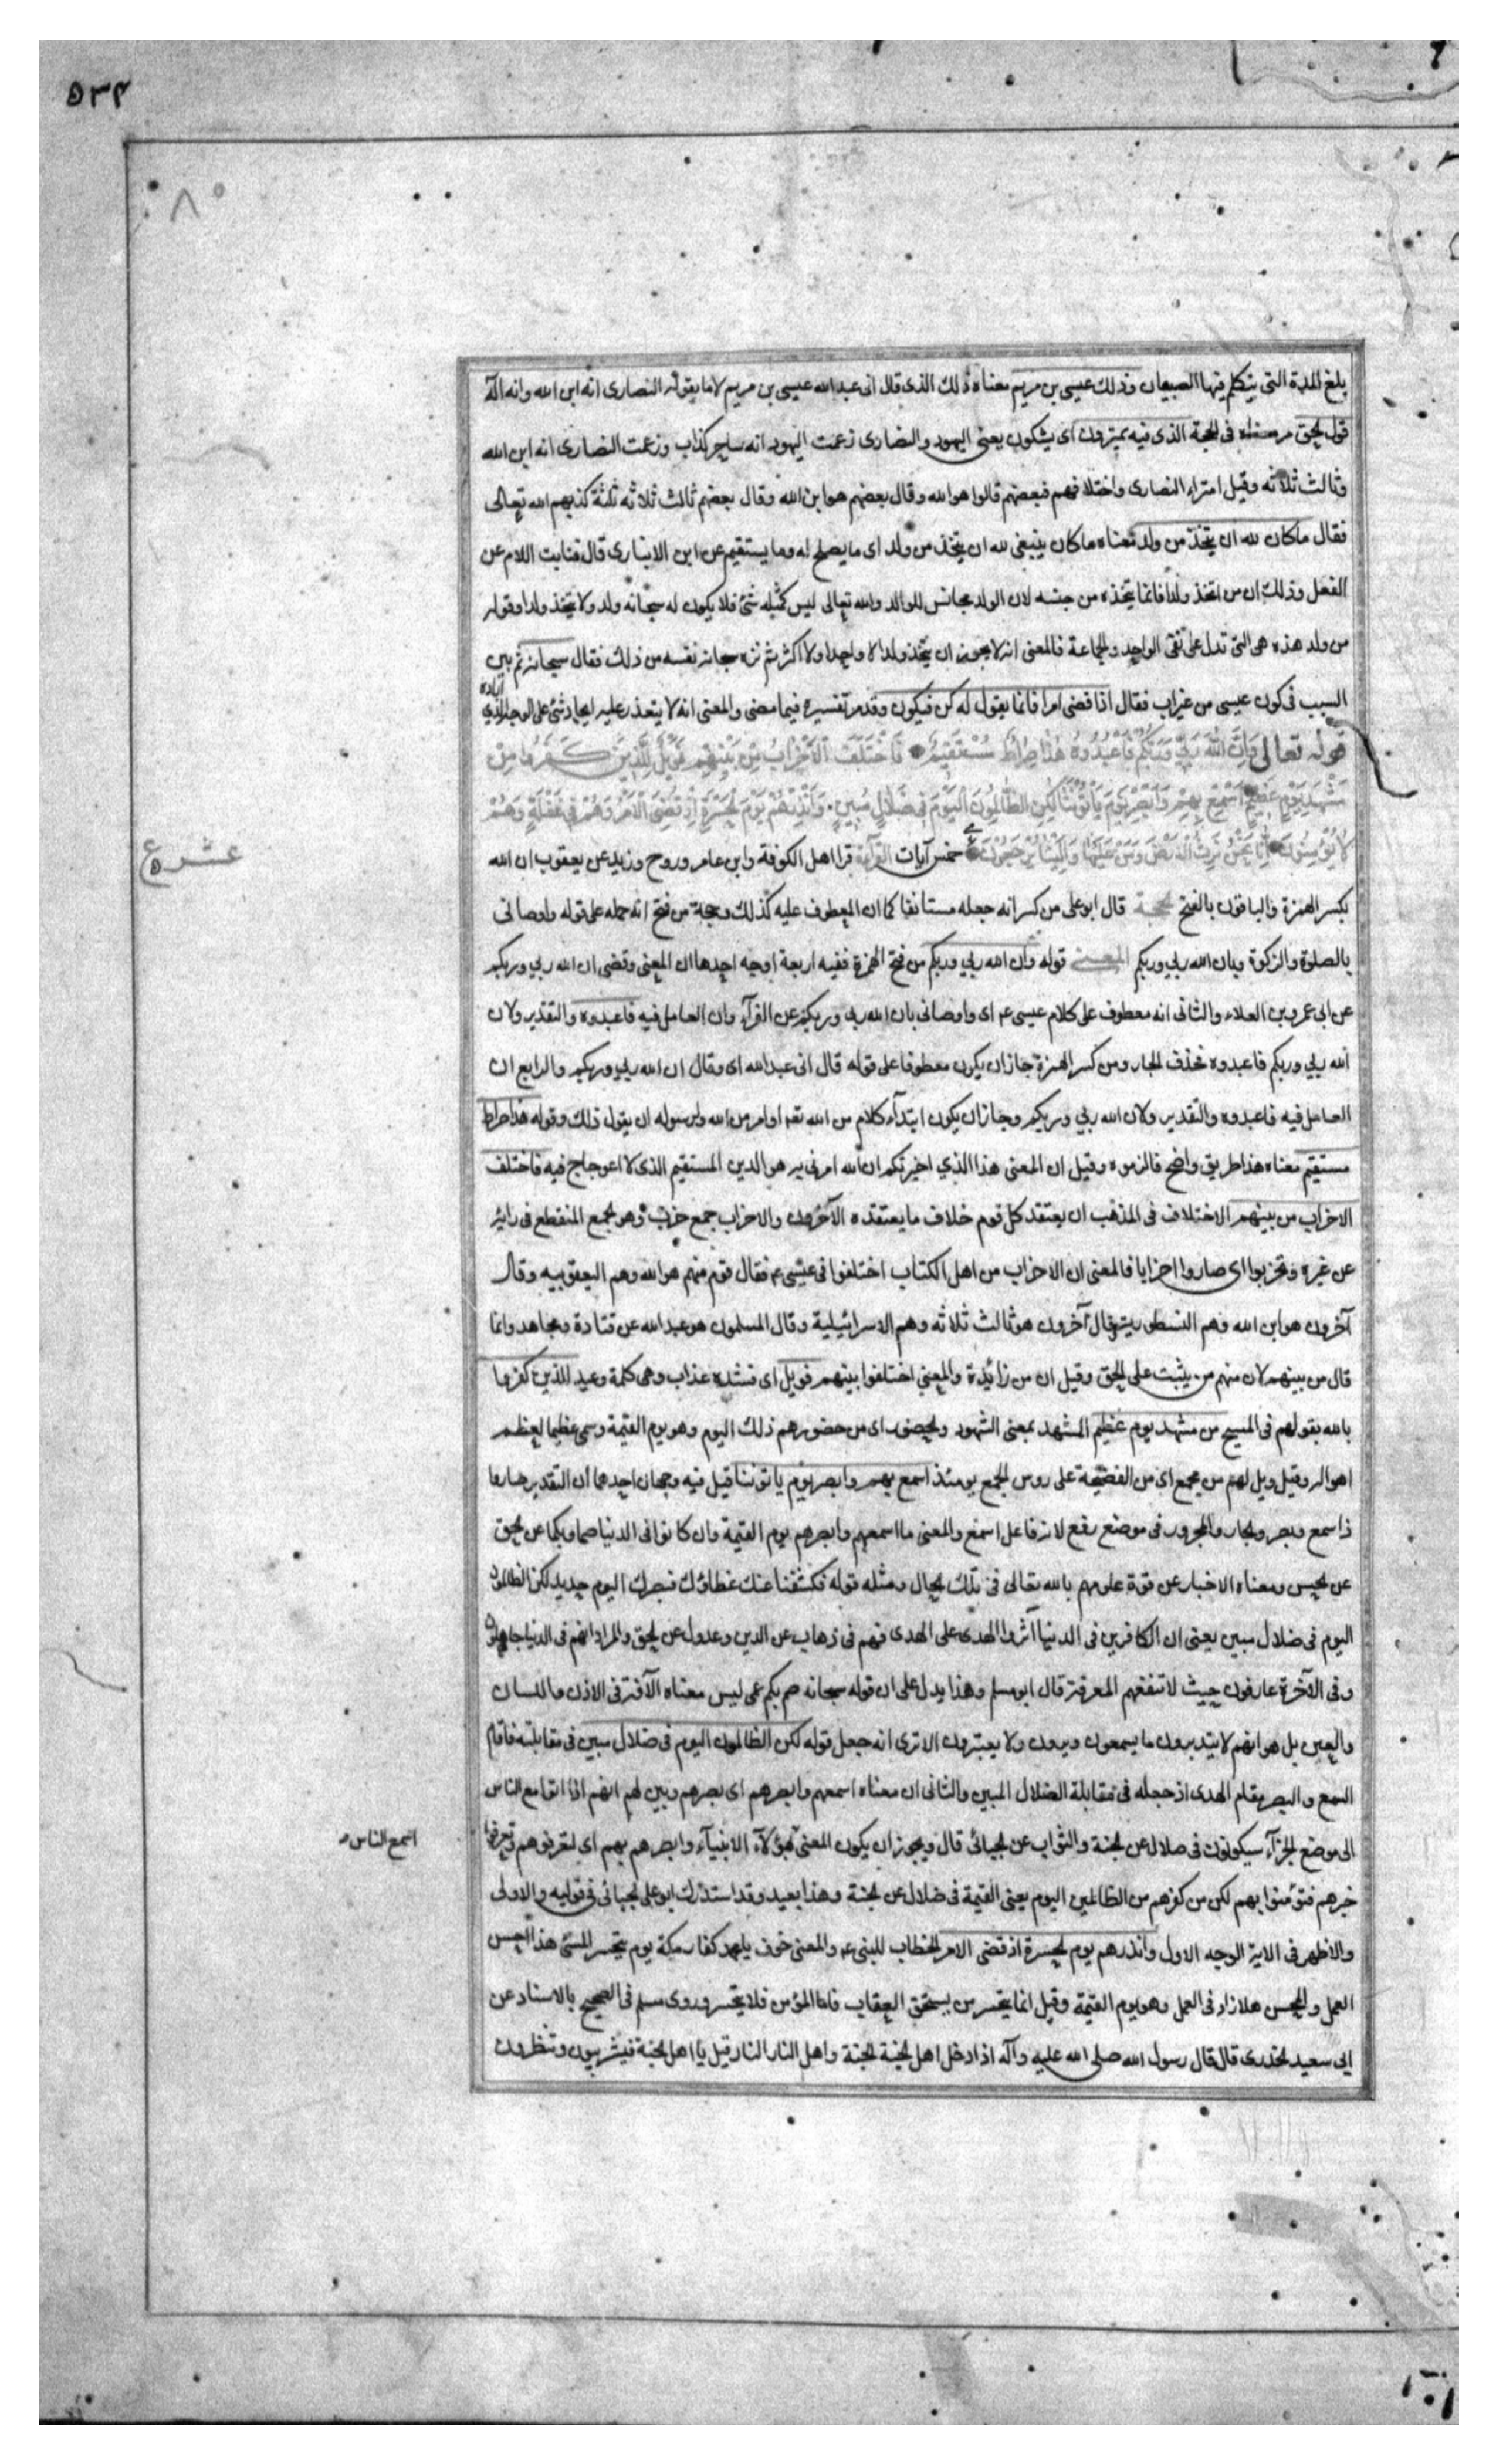 ٥٣٤
بلغ المدة التى يتكلم فيها الصبيان وذلك عيسى بن مريم معناه ذلك الذى قال انى عبد الله عيسى بن مريم لا ما يقوله النصارى انه ابن الله وانه اله
قول الحق فى الجنة الذى فيه يمترون اى يشكون يعنى اليهود والنصارى زعمت اليهود انه ساحر كذاب وزعمت النصارى انه ابن الله
وثالث ثلاثه وقيل امتراء النصارى واختلافهم فبعضهم قالوا هو الله وقال بعضهم هو ابن الله وقال بعضهم ثالث ثلاثه ثلثة كذبهم الله تعالى
فقال ماكان لله ان يتخذ من ولد معناه ماكان ينبغى لله ان يتخذ من ولد اى ما يصلح له وما يستقيم عن ابن الانبارى قال فنابت اللام عن
الفعل وذلك ان من اتخذ ولدا فانما يتخذه من جنسه لان الولد مجانس للوالد والله تعالى ليس كمثله شئ فلا يكون له سبحانه ولد ولا يتخذ ولدا وقوله
من ولد هذه هى التى تدل على نفى الواحد والجماعة فالمعنى انه لا يجوز ان يتخذ ولدا لا واحدا ولا اكثر ثم نزه سبحانه نفسه من ذلك فقال سبحانه ثم بين
السبب فى كون عيسى من غير اب فقال اذا قضى امرا فانما يقول له كن فيكون وقد مر تفسيره فيما مضى والمعنى انه لا يتعذر عليه ايجاد شئ على الوجه الذى
اراده
قوله تعالى وَاِنَّ اللّٰهَ رَبِّى وَرَبُّكُمْ فَاعْبُدُوهُ هٰذَا صِرَاطٌ مُسْتَقِيمٌ فَاخْتَلَفَ الْاَحْزَابُ مِنْ بَيْنِهِمْ فَوَيْلٌ لِلَّذِينَ كَفَرُوا مِنْ
مَشْهَدِ يَوْمٍ عَظِيمٍ اَسْمِعْ بِهِمْ وَاَبْصِرْ يَوْمَ يَأْتُونَنَا لٰكِنِ الظَّالِمُونَ الْيَوْمَ فِى ضَلَالٍ مُبِينٍ وَاَنْذِرْهُمْ يَوْمَ الْحَسْرَةِ اِذْ قُضِىَ الْاَمْرُ وَهُمْ فِى غَفْلَةٍ وَهُمْ
لَا يُؤْمِنُونَ اِنَّا نَحْنُ نَرِثُ الْاَرْضَ وَمَنْ عَلَيْهَا وَاِلَيْنَا يُرْجَعُونَ خمس آيات القرآءة قرا اهل الكوفة وابن عامر وروح وزيد عن يعقوب ان الله
عشر ع
بكسر الهمزة والباقون بالفتح الحجة قال ابو على من كسر انه جعله مستانفا كما ان المعطوف عليه كذلك وحجة من فتح انه حمله على قوله واوصانى
بالصلوة والزكوة وبان الله ربى وربكم المعنى قوله وان الله ربى وربكم من فتح الهمزة ففيه اربعة اوجه احدها ان المعنى وقضى ان الله ربى وربكم
عن ابى عمرو بن العلاء والثانى انه معطوف على كلام عيسى ع اى واوصانى بان الله ربى وربكم عن الفرآء وان العامل فيه فاعبدوه والتقدير ولان
الله ربى وربكم فاعبدوه فحذف الجار ومن كسر الهمزة جاز ان يكون معطوفا على قوله قال انى عبد الله اى وقال ان الله ربى وربكم والرابع ان
العامل فيه فاعبدوه والتقدير ولان الله ربى وربكم وجاز ان يكون ابتدآء كلام من الله تعه او امر من الله ولرسوله ان يقول ذلك وقوله هذا صراط
مستقيم معناه هذا طريق واضح فالزموه وقيل ان المعنى هذا الذي اخبرتكم ان الله امرنى به هو الدين المستقيم الذى لا اعوجاج فيه فاختلف
الاحزاب من بينهم الاختلاف فى المذهب ان يعتقد كل قوم خلاف ما يعتقده الآخرون والاحزاب جمع حزب وهو الجمع المنقطع فى رايه
عن غيره وتحزبوا اى صاروا احزابا فالمعنى ان الاحزاب من اهل الكتاب اختلفوا فى عيسى ع فقال قوم منهم هو الله وهم اليعقوبيه وقال
آخرون هو ابن الله وهم النسطورية وقال آخرون هو ثالث ثلاثه وهم الاسرائيلية وقال المسلمون هو عبد الله عن قتادة ومجاهد وانما
قال من بينهم لان منهم من يثبت على الحق وقيل ان من زائيدة والمعنى اختلفوا بينهم فويل اى فشدة عذاب وهى كلمة وعيد للذين كفروا
بالله بقولهم فى المسيح من مشهد يوم عظيم المشهد بمعنى الشهود والحضور اى من حضورهم ذلك اليوم وهو يوم القيمة وسمى عظيما لعظم
اهواله وقيل ويل لهم من مجمع اى من الفضيحة على روس الجمع يومئذ اسمع بهم وابصر يوم ياتوننا قيل فيه وجهان احدهما ان التقدير صاروا
ذا سمع وبصر والجار والمجرور فى موضع رفع لانه فاعل اسمع والمعنى ما اسمعهم وابصرهم يوم القيمة وان كانوا فى الدنيا صما وبكما عن الحق
عن الحسن ومعناه الاخبار عن قوة علومهم بالله تعالى فى تلك الحال ومثله قوله فكشفنا عنك غطاؤك فبصرك اليوم حديد لكن الظالمون
اليوم فى ضلال مبين يعنى ان الكافرين فى الدنيا آثروا الهدى على الهدى فهم فى ذهاب عن الدين وعدول عن الحق والمراد انهم فى الدنيا جاهلون
وفى الآخرة عارفون حيث لا تنفعهم المعرفة قال ابو مسلم وهذا يدل على ان قوله سبحانه صم بكم عمى ليس معناه الآفة فى الاذن واللسان
والعين بل هو انهم لا يتدبرون ما يسمعون ويرون ولا يعتبرون الا ترى انه جعل قوله لكن الظالمون اليوم فى ضلال مبين فى مقابلته فاقام
السمع والبصر مقام الهدى اذ جعله فى مقابلة الضلال المبين والثانى ان معناه اسمعهم وابصرهم اى بصرهم وبين لهم انهم اذا اتوا مع الناس
الى موضع الجزآء سيكونون فى ضلال عن الجنة والثواب عن الجبائى قال ويجوز ان يكون المعنى بهؤلآء الانبيآء وابصرهم بهم اى لتعرفوهم وتعرفوا
اسمع الناس
خبرهم فتؤمنوا بهم لكن من كفرهم من الظالمين اليوم يعنى القيمة فى ضلال عن الجنة وهذا بعيد وقد استدرك ابو على الجبائى فى قوليه والاولى
والاظهر فى الاية الوجه الاول وانذرهم يوم الحسرة اذ قضى الامر الخطاب للنبى ع والمعنى خوف كفار مكة يوم يتحسر المسئ هذا احسن
العمل والمحسن هلا زاد فى العمل وهو يوم القيمة وقيل انما يتحسر من يستحق العقاب فاما المؤمن فلا يتحسر وروى مسلم فى الصحيح بالاسناد عن
ابى سعيد الخدرى قال قال رسول الله صلى الله عليه وآله اذا دخل اهل الجنة الجنة واهل النار النار قيل يا اهل الجنة فيشربيون وينظرون